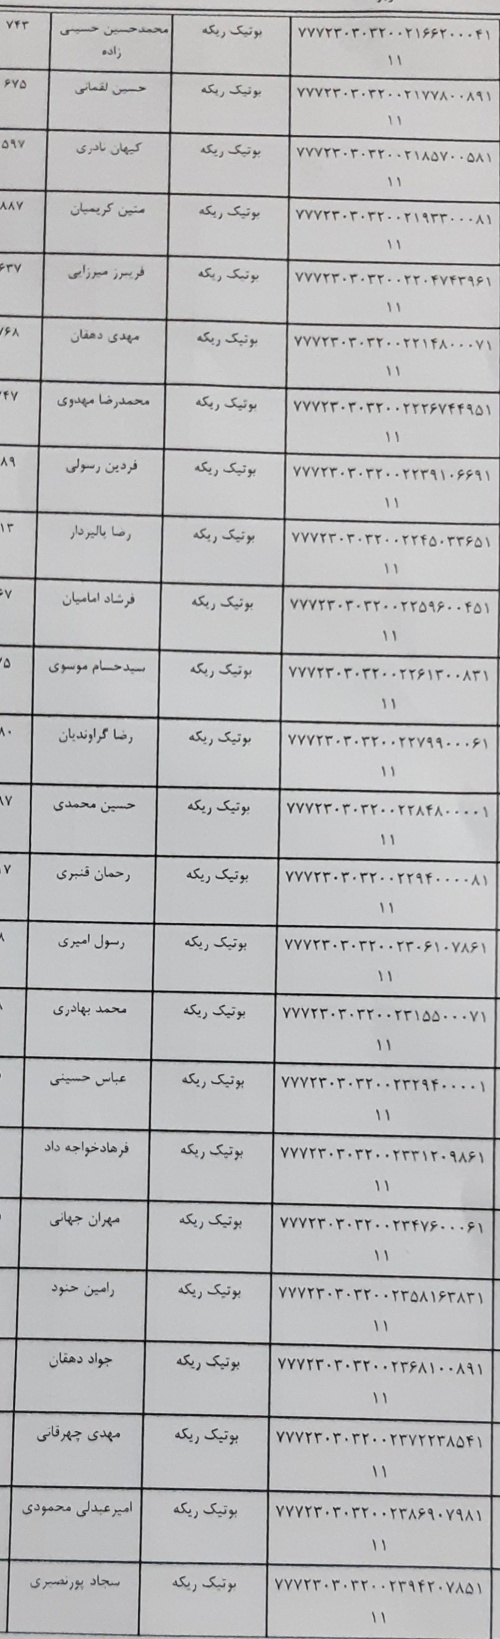 ۷۷۷۲۳۰۳۰۳۲۰۰۲۱۶۶۲۰۰۰۴۱ بوتیک ریکه محمدحسین حسینی ۷۴۳
۱۱ زاده
۷۷۷۲۳۰۳۰۳۲۰۰۲۱۷۷۸۰۰۸۹۱ بوتیک ریکه حسین لقمانی ۶۷۵
۱۱
۷۷۷۲۳۰۳۰۳۲۰۰۲۱۸۵۷۰۰۵۸۱ بوتیک ریکه کیهان نادری ۵۹۷
۱۱
۷۷۷۲۳۰۳۰۳۲۰۰۲۱۹۳۳۰۰۰۸۱ بوتیک ریکه متین کریمیان ۸۸۷
۱۱
۷۷۷۲۳۰۳۰۳۲۰۰۲۲۰۴۷۴۳۹۶۱ بوتیک ریکه فریبرز میرزایی ۶۳۷
۱۱
۷۷۷۲۳۰۳۰۳۲۰۰۲۲۱۴۸۰۰۰۷۱ بوتیک ریکه مهدی دهقان ۷۶۸
۱۱
۷۷۷۲۳۰۳۰۳۲۰۰۲۲۲۶۷۴۴۹۵۱ بوتیک ریکه محمدرضا مهدوی ۴۷
۱۱
۷۷۷۲۳۰۳۰۳۲۰۰۲۲۳۹۱۰۶۶۹۱ بوتیک ریکه فردین رسولی ۸۹
۱۱
۷۷۷۲۳۰۳۰۳۲۰۰۲۲۴۵۰۳۳۶۵۱ بوتیک ریکه رضا بالیردار ۱۳
۱۱
۷۷۷۲۳۰۳۰۳۲۰۰۲۲۵۹۶۰۰۴۵۱ بوتیک ریکه فرشاد امامیان ۶۷
۱۱
۷۷۷۲۳۰۳۰۳۲۰۰۲۲۶۱۳۰۰۸۳۱ بوتیک ریکه سیدحسام موسوی ۷۵
۱۱
۷۷۷۲۳۰۳۰۳۲۰۰۲۲۷۹۹۰۰۰۶۱ بوتیک ریکه رضا گراوندیان ۸۰
۱۱
۷۷۷۲۳۰۳۰۳۲۰۰۲۲۸۴۸۰۰۰۰۱ بوتیک ریکه حسین محمدی ۸۷
۱۱
۷۷۷۲۳۰۳۰۳۲۰۰۲۲۹۴۰۰۰۰۸۱ بوتیک ریکه رحمان قنبری ۱۷
۱۱
۷۷۷۲۳۰۳۰۳۲۰۰۲۳۰۶۱۰۷۸۶۱ بوتیک ریکه رسول امیری ۸
۱۱
۷۷۷۲۳۰۳۰۳۲۰۰۲۳۱۵۵۰۰۰۷۱ بوتیک ریکه محمد بهادری
۱۱
۷۷۷۲۳۰۳۰۳۲۰۰۲۳۲۹۴۰۰۰۰۱ بوتیک ریکه عباس حسینی
۱۱
۷۷۷۲۳۰۳۰۳۲۰۰۲۳۳۱۲۰۹۸۶۱ بوتیک ریکه فرهادخواجه داد
۱۱
۷۷۷۲۳۰۳۰۳۲۰۰۲۳۴۷۶۰۰۰۶۱ بوتیک ریکه مهران جهانی
۱۱
۷۷۷۲۳۰۳۰۳۲۰۰۲۳۵۸۱۶۳۸۳۱ بوتیک ریکه رامین حنود
۱۱
۷۷۷۲۳۰۳۰۳۲۰۰۲۳۶۸۱۰۰۸۹۱ بوتیک ریکه جواد دهقان
۱۱
۷۷۷۲۳۰۳۰۳۲۰۰۲۳۷۲۲۳۸۵۴۱ بوتیک ریکه مهدی چهرقانی
۱۱
۷۷۷۲۳۰۳۰۳۲۰۰۲۳۸۶۹۰۷۹۸۱ بوتیک ریکه امیرعبدلی محمودی
۱۱
۷۷۷۲۳۰۳۰۳۲۰۰۲۳۹۴۲۰۷۸۵۱ بوتیک ریکه سجاد پورنصیری
۱۱